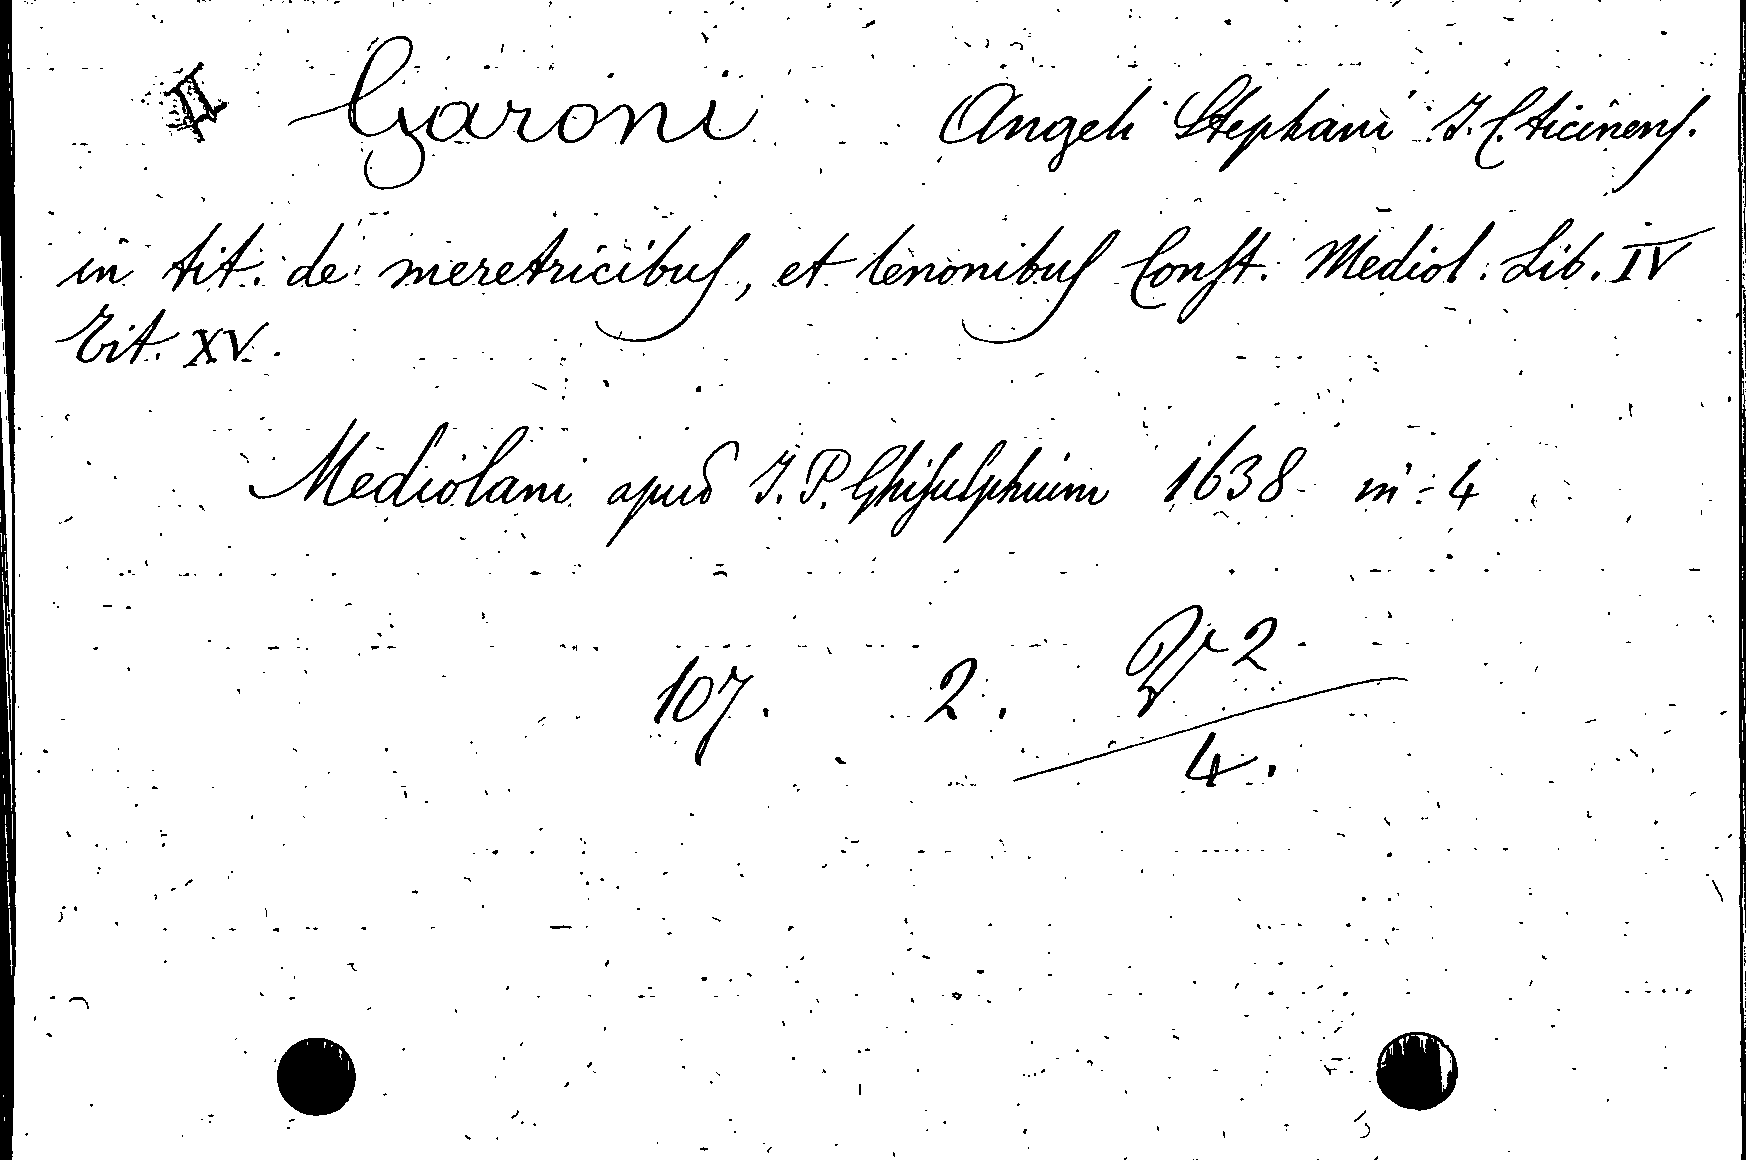 II Garoni Angeli Stephani J. C. ticinens.
in tit. de meretricibus, et lenonibus Const. Mediol. Lib. IV
Tit. XV.
Mediolani apud J. P. Ghisulphium 1638 in 4
107. 2. V 2
4.